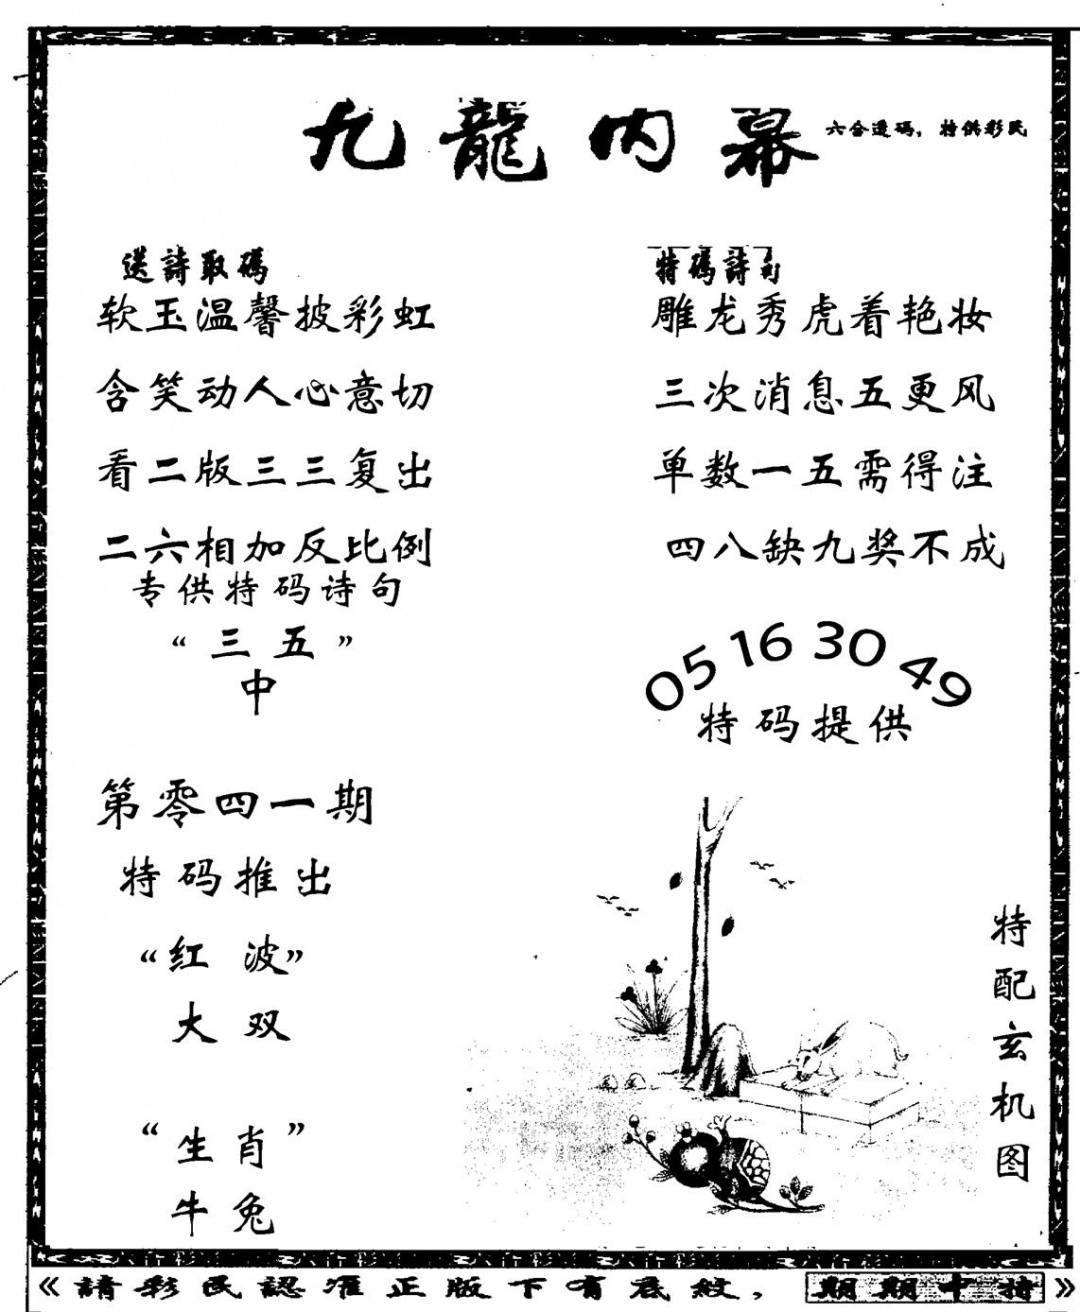 九龍内幕
六合透碼，特供彩民
送詩取碼
软玉温馨披彩虹
含笑动人心意切
看二版三三复出
二六相加反比例
专供特码诗句
“三五”
中
特碼詩句
雕龙秀虎着艳妆
三次消息五更风
单数一五需得注
四八缺九奖不成
05 16 30 49
特码提供
第零四一期
特码推出
“红波”
大双
“生肖”
牛兔
特配玄机图
《請彩民認准正版下有底紋，期期中特》